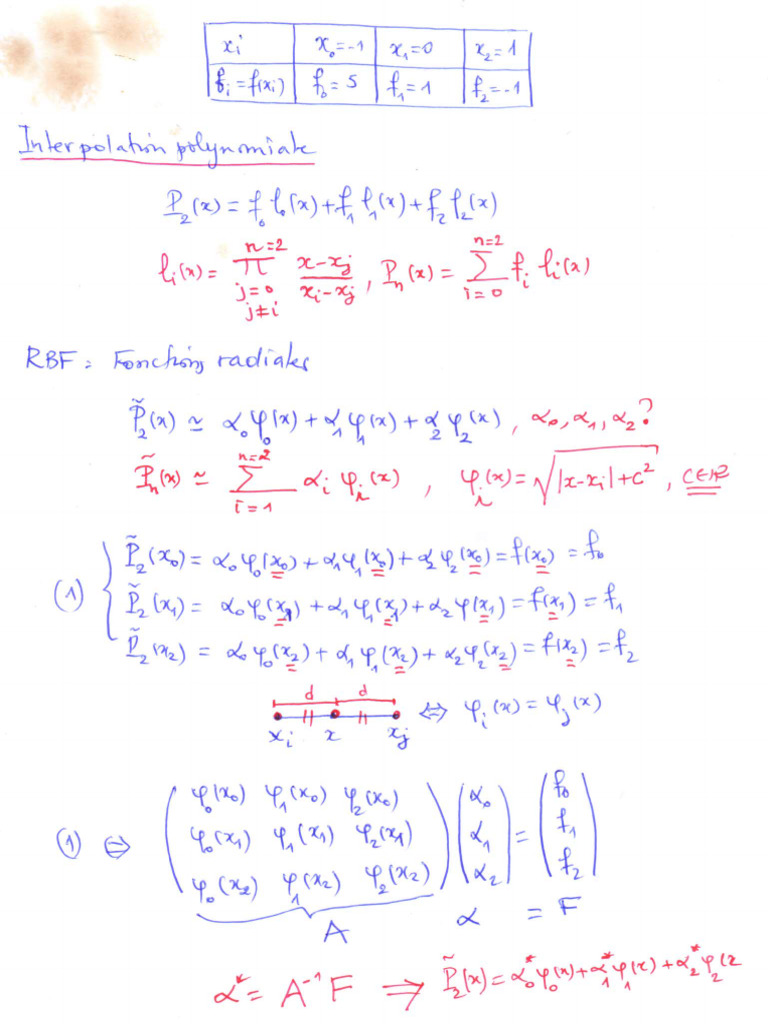 xi | x₀=-1 | x₁=0 | x₂=1
fi=f(xi) | f₀=5 | f₁=1 | f₂=-1
Interpolation polynomiale
P₂(x) = f₀ l₀(x) + f₁ l₁(x) + f₂ l₂(x)
li(x) = ∏_{j=0, j≠i}^{n=2} (x-xj)/(xi-xj) , Pn(x) = ∑_{i=0}^{n=2} fi li(x)
RBF : Fonctions radiales
P̃₂(x) ≃ α₀φ₀(x) + α₁φ₁(x) + α₂φ₂(x) , α₀, α₁, α₂ ?
P̃n(x) ≃ ∑_{i=1}^{n=2} αi φi(x) , φi(x) = √(|x-xi|+c²) , C∈ℝ
P̃₂(x₀) = α₀φ₀(x₀) + α₁φ₁(x₀) + α₂φ₂(x₀) = f(x₀) = f₀
(1) { P̃₂(x₁) = α₀φ₀(x₁) + α₁φ₁(x₁) + α₂φ(x₁) = f(x₁) = f₁
P̃₂(x₂) = α₀φ₀(x₂) + α₁φ₁(x₂) + α₂φ₂(x₂) = f(x₂) = f₂
d d
xi x xj ⇔ φi(x) = φj(x)
φ₀(x₀) φ₁(x₀) φ₂(x₀) α₀ f₀
(1) ⇔ φ₀(x₁) φ₁(x₁) φ₂(x₁) α₁ = f₁
φ₀(x₂) φ₁(x₂) φ₂(x₂) α₂ f₂
A α = F
α* = A⁻¹F ⟹ P̃₂(x) = α₀*φ₀(x) + α₁*φ₁(x) + α₂*φ₂(2